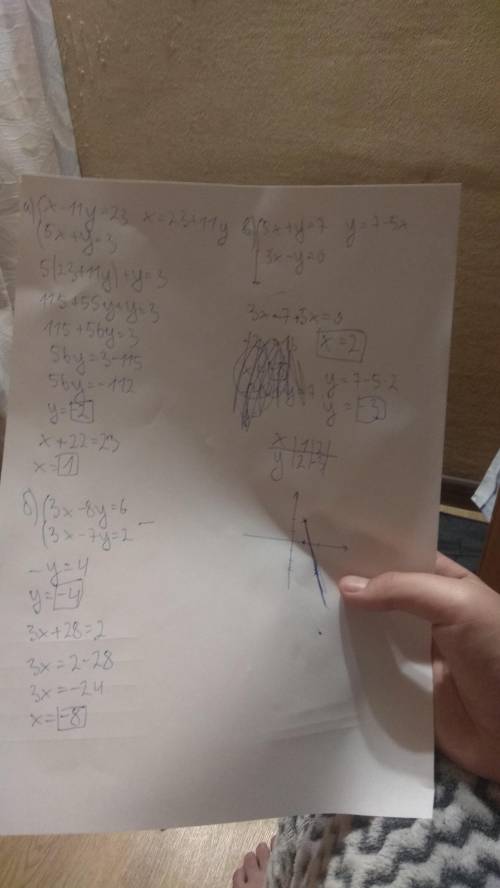 а) { x-11y=23 x=23+11y
5x+y=3
5(23+11y)+y=3
115+55y+y=3
115+56y=3
56y=3-115
56y=-112
y=-2
x+22=23
x=1
б) { 3x-8y=6
3x-7y=2 -
-y=4
y=-4
3x+28=2
3x=2-28
3x=-24
x=-8
5x+y=7 y=7-5x
3x-y=
x=2
y=7-5·2
y=-3
x | 1 | 2
y | 2 | -3